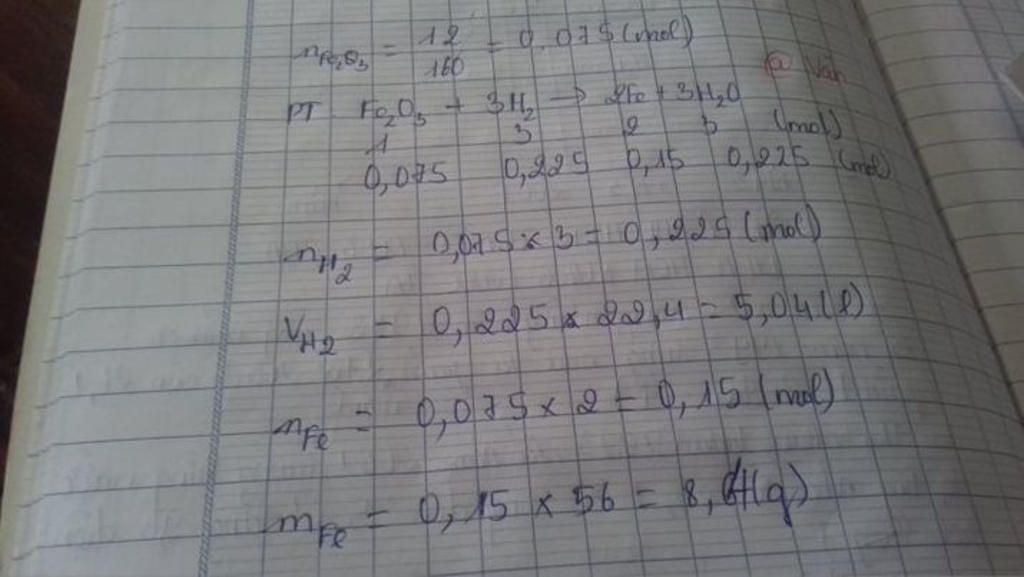 nFe₂O₃ = 12/160 = 0,075 (mol)
@ Vân
PT Fe₂O₃ + 3H₂ → 2Fe + 3H₂O
1 3 2 3 (mol)
0,075 0,225 0,15 0,225 (mol)
nH₂ = 0,075 x 3 = 0,225 (mol)
VH₂ = 0,225 x 22,4 = 5,04 (l)
nFe = 0,075 x 2 = 0,15 (mol)
mFe = 0,15 x 56 = 8,4 (g)